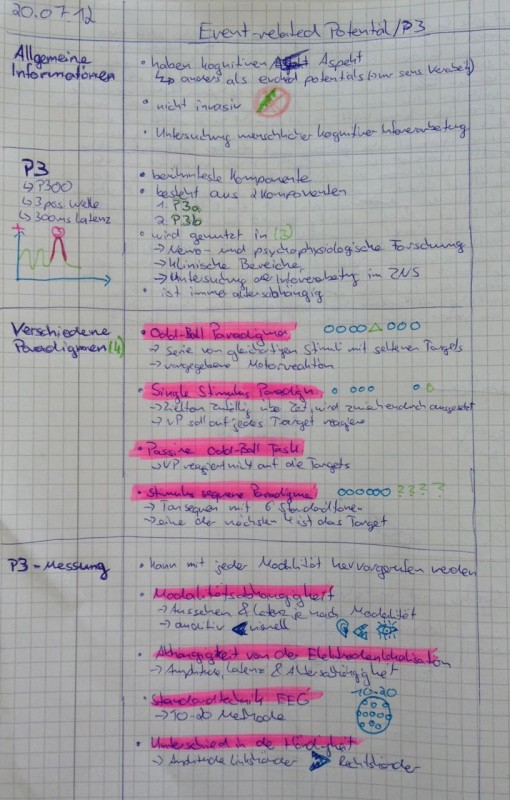 20.07.12
Event-related Potential/P3
Allgemeine
Informationen
• haben kognitiven Aspekt
↳ anders als evoked potentials (nur sens Verarbeit)
• nicht invasiv
• Untersuchung menschlicher kognitiver Infoverarbeitung
P3
↳ P300
↳ 3 pos welle
↳ 300ms Latenz
+
• berühmteste Komponente
• besteht aus 2 Komponenten
1. P3a
2. P3b
• wird genutzt in (3)
→ Neuro- und psychophysiologische Forschung
→ Klinische Bereiche
→ Untersuchung der Infoverarbeitung im ZNS
• ist immer altersabhängig
Verschiedene
Paradigmen (4)
• Odd-Ball Paradigma
→ Serie von gleichartigen Stimuli mit seltenen Targets
→ vorgegebene Motorreaktion
• Single Stimulus Paradigm
→ Zielton zufällig über Zeit, wird zwischendrin ausgesetzt
→ VP soll auf jedes Target reagieren
• Passive Odd-Ball Task
→ VP reagiert nicht auf die Targets
• Stimulus sequence Paradigma ? ? ? ?
→ Tonsequen mit 6 Standardtönen
→ eine der nächsten 4 ist das Target
P3-Messung
• kann mit jeder Modalität hervorgerufen werden
• Modalitätsabhängigkeit
→ Aussehen & Latenz je nach Modalität
→ auditiv < visuell
• Abhängigkeit von der Elektrodenlokalisation
→ Amplitude, Latenz & Altersabhängigkeit
• Standardtechnik EEG
→ 10-20 Methode
10-20
• Unterschied in der Händigkeit
→ Amplitude Linkshänder > Rechtshänder